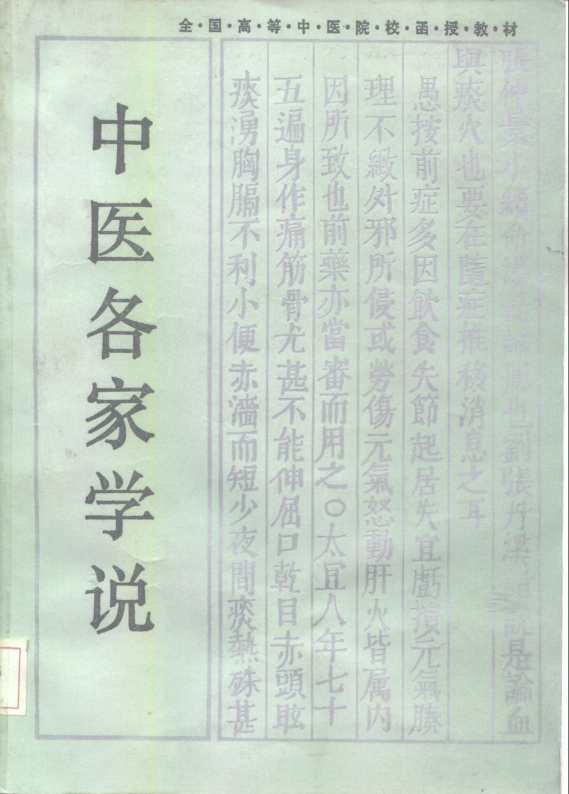 全·国·高·等·中·医·院·校·函·授·教·材
中医各家学说
張仲景小續命湯劉張丹溪是論血
與痰火也要在隨症推移消息之耳
愚按前症多因飲食失節起居失宜虧損元氣腠
理不緻外邪所侵或勞傷元氣怒動肝火皆属内
因所致也前藥亦當審而用之〇太宜人年七十
五遍身作痛筋骨尤甚不能伸屈口乾目赤頭眩
痰湧胸膈不利小便赤濇而短少夜間痰熱殊甚